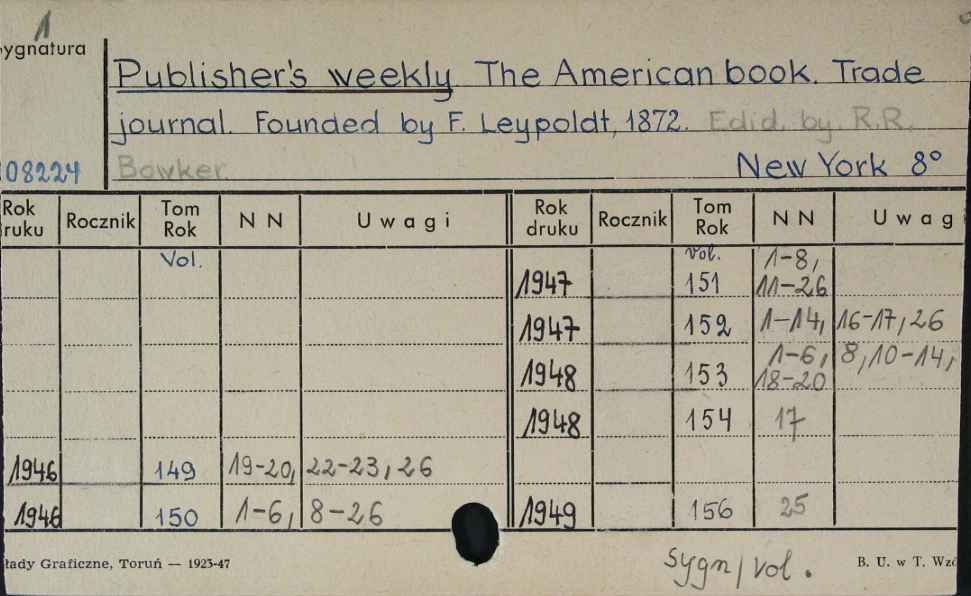 1
ygnatura
Publisher's weekly The American book. Trade
journal. Founded by F. Leypoldt, 1872. Edid. by. R.R.
08224 Bowker. New York 8°
Rok ruku Rocznik Tom Rok N N Uwagi Rok druku Rocznik Tom Rok N N Uwag
Vol. vol. 1-8,
1947 151 11-26
1947 152 1-14, 16-17, 26
1-6, 8, 10-14,
1948 153 18-20
1948 154 17
1946 149 19-20, 22-23, 26
1946 150 1-6, 8-26 1949 156 25
łady Graficzne, Toruń — 1925-47 sygn/vol. B. U. w T. Wzó